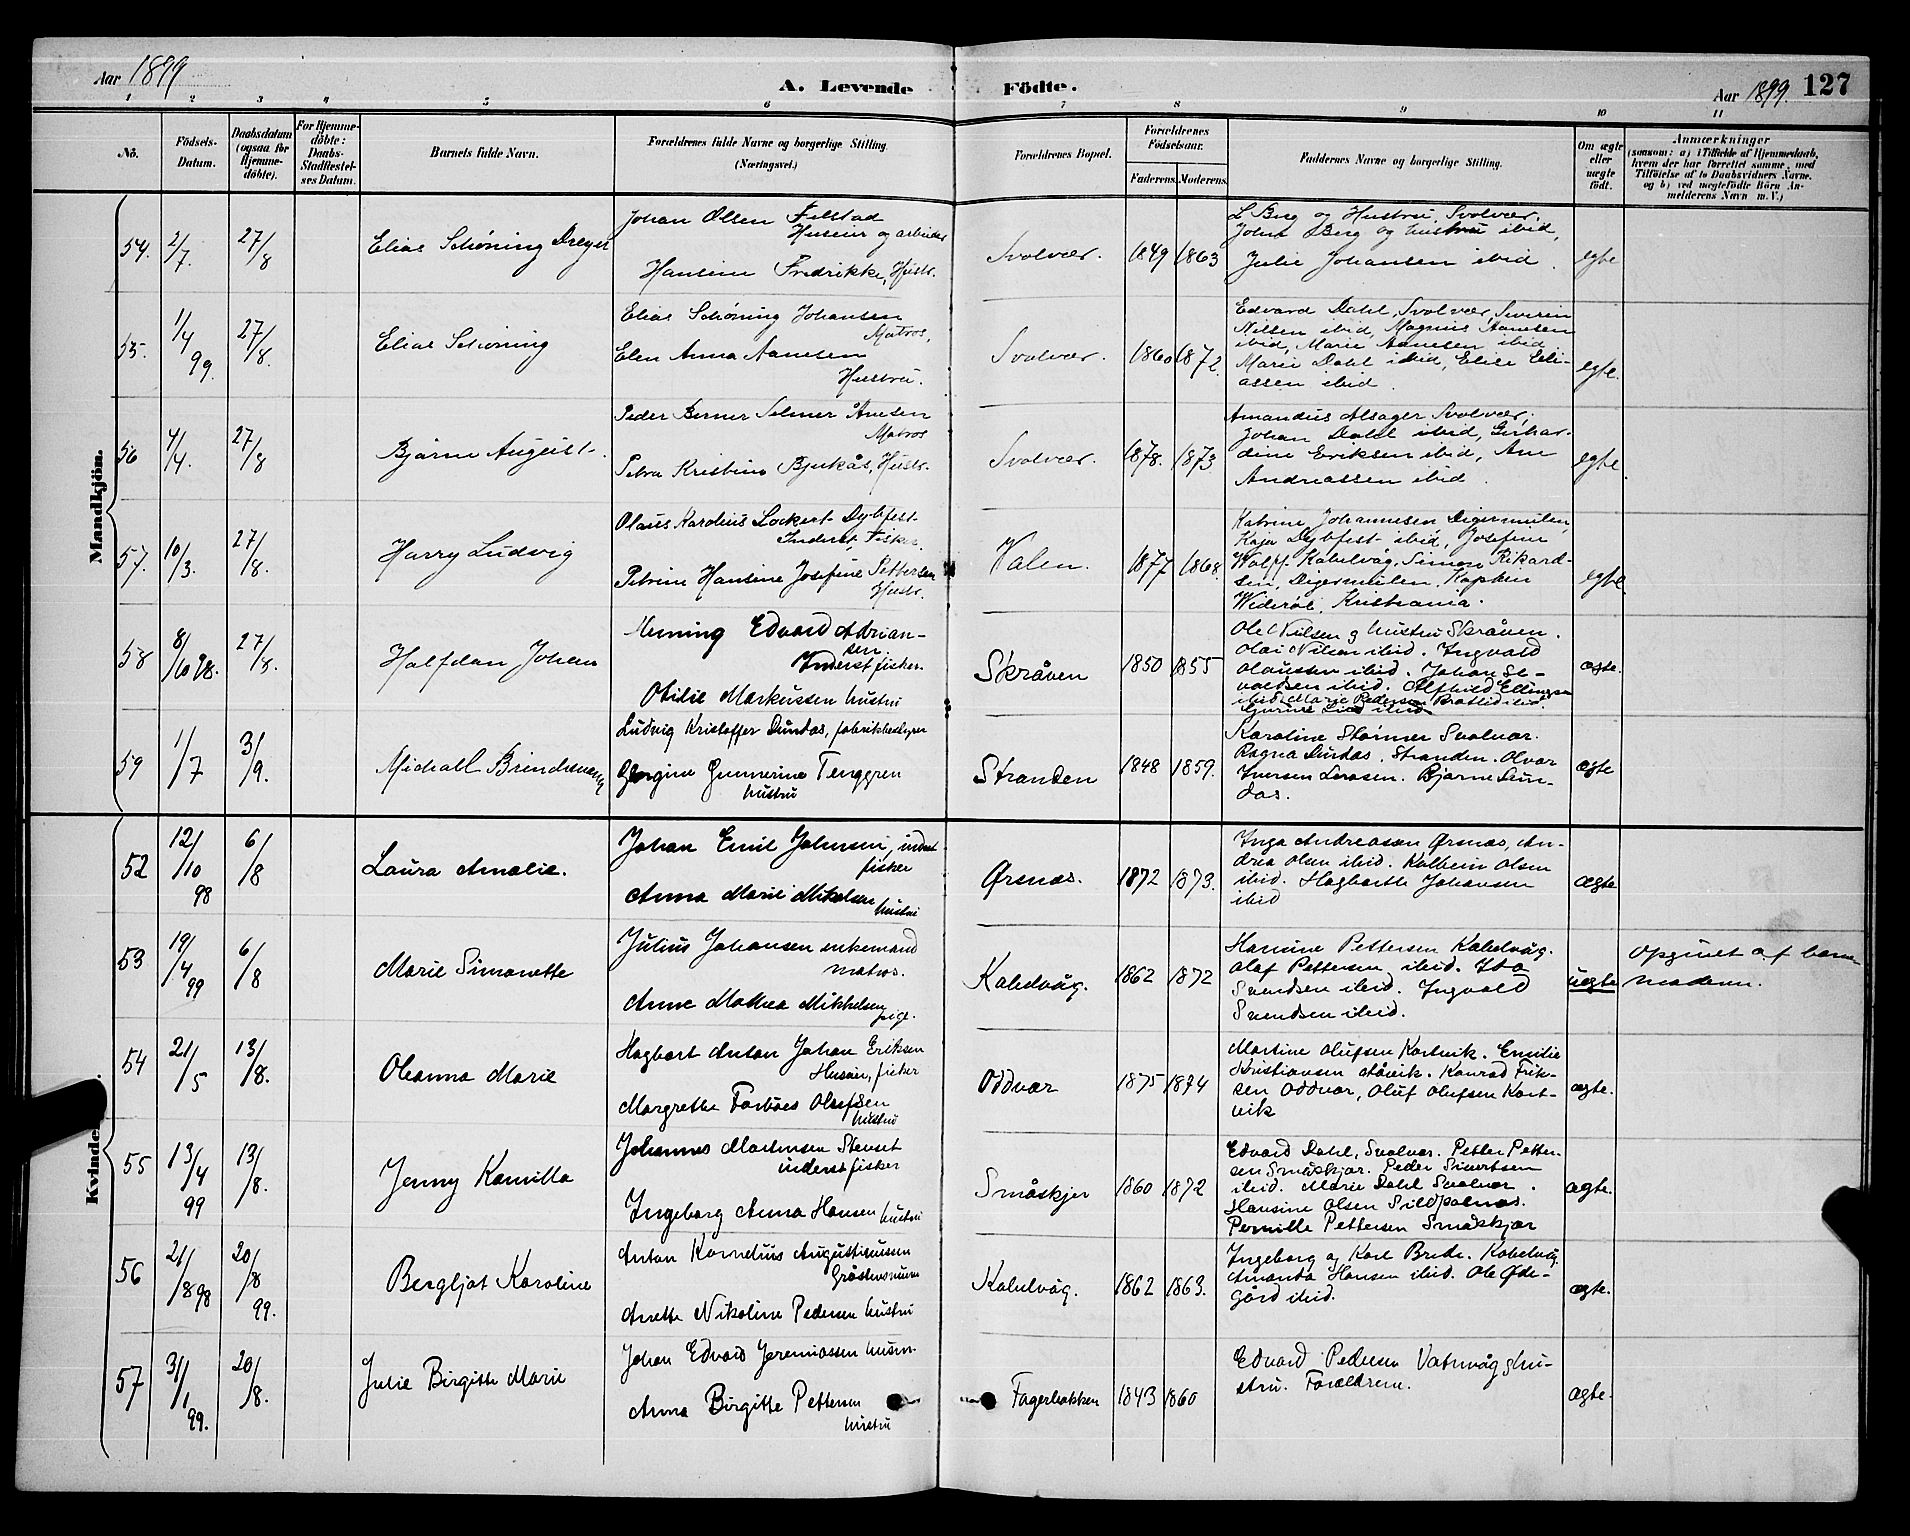 Aar 1899
A. Levende Födte.
Aar 1899. 127
1 2 3 4 5 6 7 8 9 10 11
No.
Födsels-
Datum.
Daabsdatum
(ogsaa for
Hjemme-
döbte).
For Hjemme-
döbte:
Daabs-
Stadfæstel-
ses Datum.
Barnets fulde Navn.
Forældrenes fulde Navne og borgerlige Stilling.
(Næringsvei.)
Forældrenes Bopæl.
Forældrenes
Födselsaar.
Faderens. Moderens.
Faddernes Navne og borgerlige Stilling.
Om ægte
eller
uægte
födt.
Anmærkninger
(saasom: a) i Tilfælde af Hjemmedaab,
hvem der har forrettet samme, med
Tilföielse af to Daabsvidners Navne.
og b) ved uægtefödte Börn An-
melderens Navn m. V.)
Mandkjön.
54. 2/7. 27/8 Elias Schøning Dreyer
Johan Olsen Felstad
Husein og arbeider
Hansine Fredrikke, Hustr.
Svolvær. 1849 1863
L Berg og Hustru, Svolvær,
Johs Berg og hustru ibid,
Julie Johansen ibid.
egte
55. 1/4 99. 27/8. Elias Schøning
Elias Schöning Johansen
Matros,
Elen Anna Aanesen
Hustru.
Svolvær. 1860 1872.
Edvard Dahl, Svolvær, Severin
Nilsen ibid, Magnus Aanesen
ibid, Marie Aanesen ibid
Marie Dahl ibid, Elise Eli-
assen ibid.
egte.
56 4/4. 27/8 Bjarne August
Peder Berner Selmer Ånesen
Matros
Petra Kristine Bjerkås, Hustr.
Svolvær. 1878. 1873
Amandus Alsager Svolvær,
Johan Dahl ibid, Gerhar-
dine Eriksen ibid, Ane
Andreassen ibid.
egte
57. 10/3. 27/8. Harry Ludvig
Olaus Karolius Lockert Dybfest
Inderst, Fisker.
Petrine Hansine Josefine Pettersen
Hustr.
Valen. 1877 1868.
Katrine Johannesen Digermulen,
Kaja Dybfest ibid, Josefine
Wolff Kabelvåg, Simon Rikard-
sen, Digermulen,
Widerøe, Kristiania.
egte
58 8/10 98. 27/8. Halfdan Johan
Henning Edvard Adrian-
sen
Inderst fisker.
Otilie Markussen hustru
Skråven 1850 1855
Ole Nilsen og hustru Skråven.
Olai Nilsen ibid. Ingvald
Olaussen ibid. Johan Si-
valdsen ibid. Alfhild Ellingsen
ibid. Marie Pedersen Brattlid ibid.
Lind ibid
ægte.
59 1/7 3/9. Michael Brinchmann
Ludvig Kristoffer Dundas, fabrikbestyrer
Georgine Gunnerine Tenggren
hustru
Stranden 1848 1859.
Karoline Størmer Svolvær.
Ragna Dundas, Stranden. Alvar
Iversen Lerosen. Bjarne Dun-
das.
ægte
Kvinde
52 12/10 98 6/8 Laura Amalie.
Johan Emil Johnsen, inderst
fisker
Anna Marie Mikalsen
hustru
Ørsnæs. 1872 1873.
Inga Andreasen Ørsnæs, An-
drea Olsen ibid. Kalbein Olsen
ibid. Hagbarth Johansen
ibid
ægte
53 19/4 99 6/8 Marie Simonette
Julius Johansen enkemand
matros.
Anne Mathea Mikkelsen
pige.
Kabelvåg. 1862 1872
Hansine Pettersen Kabelvåg.
Olaf Pettersen ibid. Ida
Svendsen ibid. Ingvald
Svendsen ibid.
uægte
Opgivet af barne
moderen.
54 21/5 13/8. Oleanna Marie
Hagbart Anton Johan Eriksen
Huseier, fisker
Margrethe Forbøes Olufsen
hustru
Oddvær 1875 1874
Martine Olufsen Kortvik. Emilie
Kristiansen Aavik. Konrad Erik-
sen Oddvær, Oluf Olufsen Kort-
vik
ægte.
55 13/4 99 13/8. Jenny Kamilla
Johannes Martinsen Stenset
inderst fisker
Ingeborg Anna Hansen hustru
Småskjer 1860 1872
Edvard Dahl, Svolvær. Petter Petter-
sen Småskjær. Peder Sivertsen
ibid. Marie Dahl Svolvær.
Hansine Olsen Sildpolnæs.
Pernille Pettersen Småskjær
ægte.
56 21/8 98 20/8 99. Bergljot Karoline
Anton Kornelius Augustinussen
Gråstensmurer
Anette Nikoline Pedersen hustru
Kabelvåg. 1862 1863.
Ingeborg og Karl Brede. Kabelvåg.
Amanda Hansen ibid. Ole Øde-
gård ibid.
ægte.
57 31/1 99. 20/8. Julie Birgitte Marie
Johan Edvard Jeremiassen husm.
Anna Birgitte Pettersen
hustru
Fagerbakken 1843 1860
Edvard Pedersen Vatervåg hu-
stru. Forældrene.
ægte.